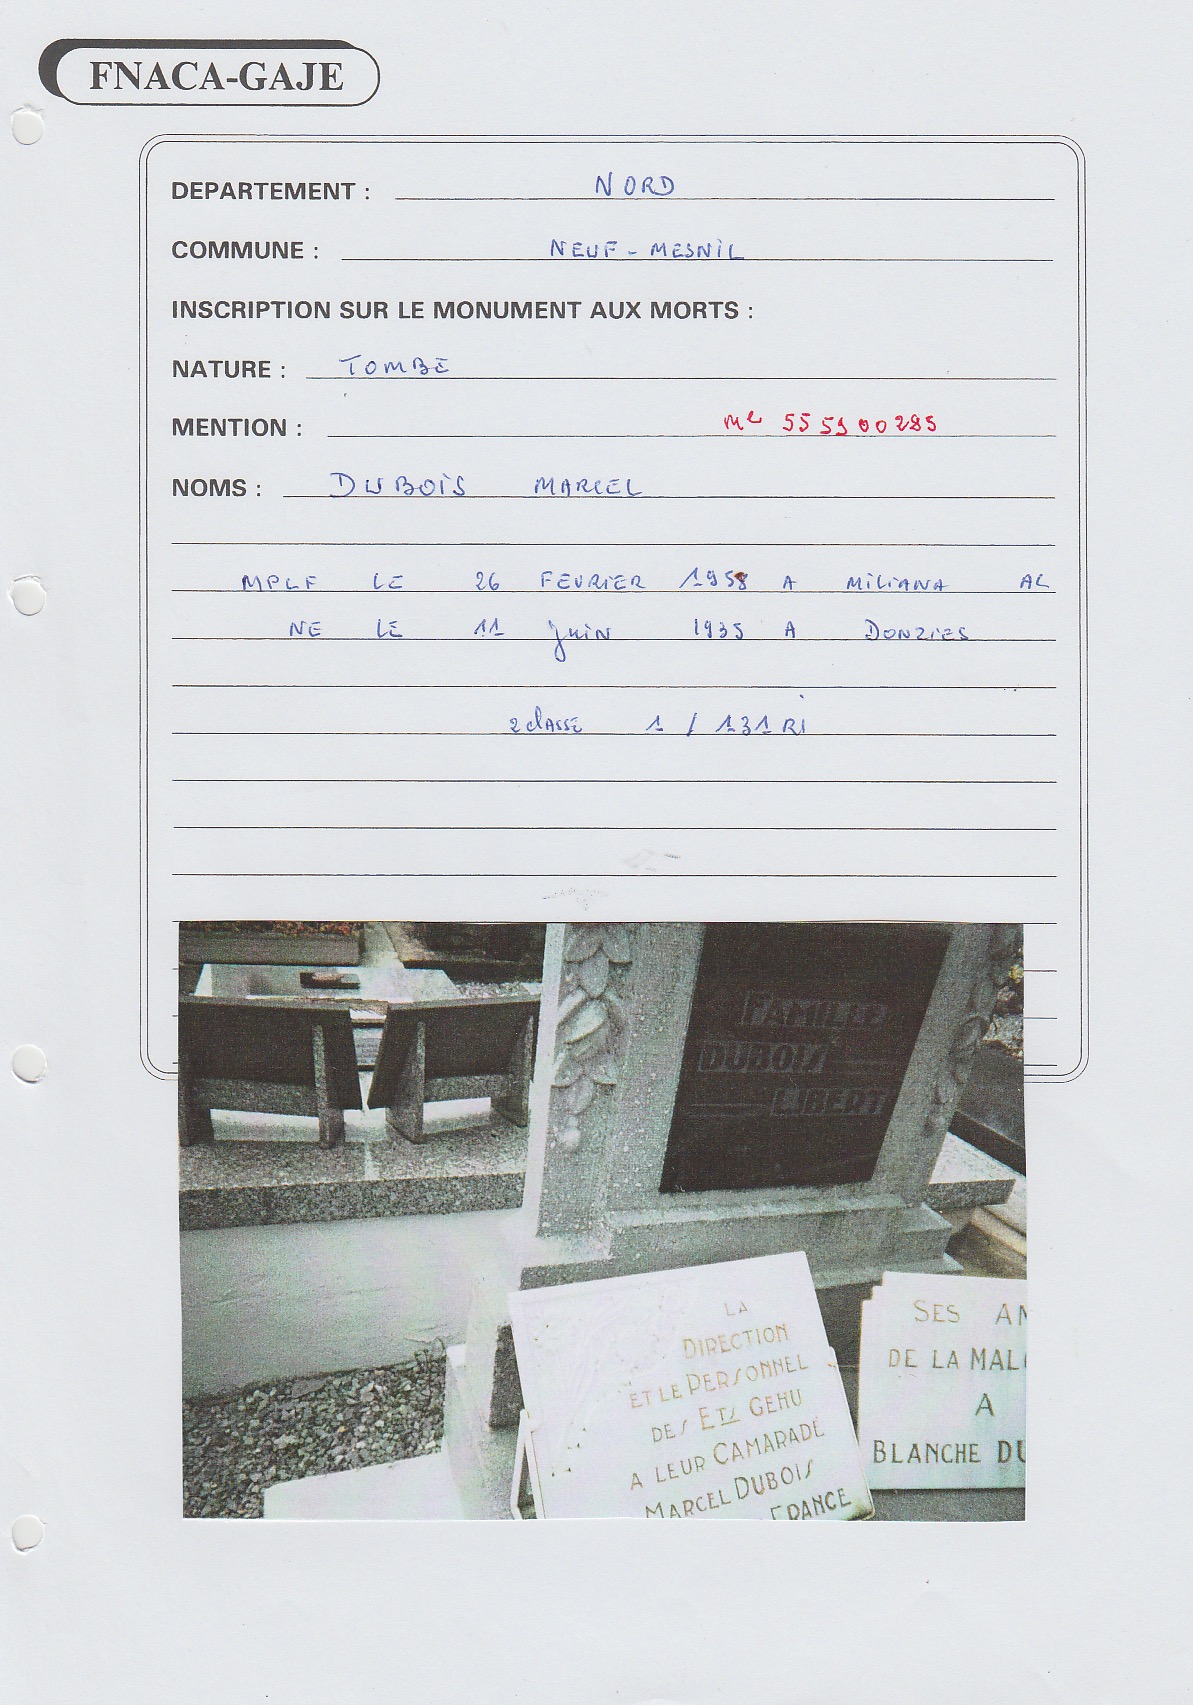 FNACA-GAJE
DEPARTEMENT : NORD
COMMUNE : NEUF-MESNIL
INSCRIPTION SUR LE MONUMENT AUX MORTS :
NATURE : TOMBE
MENTION : Mle 555900285
NOMS : DUBOIS MARCEL
MPLF LE 26 FEVRIER 1958 A MILIANA AL
NE LE 11 juin 1935 A DONZIES
2 classe 1 / 131 RI
FAMILLE
DUBOIS
LIBERT
LA
DIRECTION
ET LE PERSONNEL
DES ETS GEHU
A LEUR CAMARADE
MARCEL DUBOIS
FRANCE
SES AM
DE LA MAL
A
BLANCHE DU